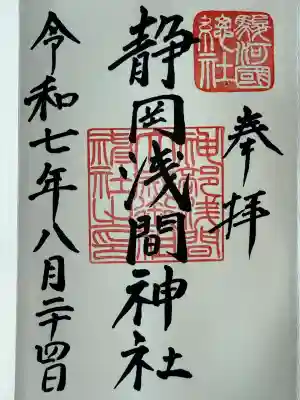 駿河國
総社
奉拝
静岡浅間神社
令和七年八月二十四日